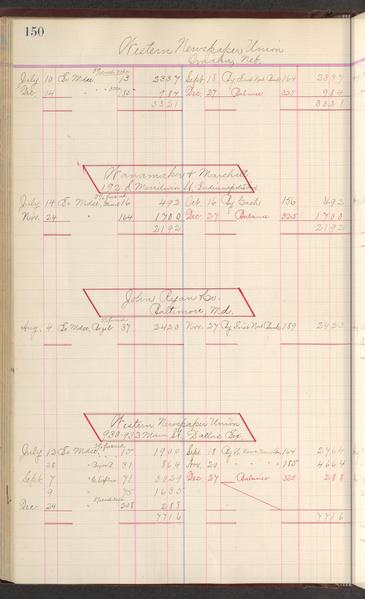 150
Western Newspaper Union
Omaha, Neb.
July 10 To Mdse. 13 2337 Sept. 18 By 164 2337
Dec. 14 " " 984 Dec. 27 Balance 325 984
3321 3321
Wanamaker & Marshall
192 S. Meridian St. Indianapolis
July 14 To Mdse. 16 492 Oct 16 By Cash 156 492
Nov. 24 " 164 1700 Dec 27 Balance 325 1700
2192 2192
John Ryan Co.
Baltimore, Md.
Aug. 4 To Mdse. 37 2423 Nov. 27 By 189 2423
Western Newspaper Union
930-932 Main St. Dallas Tex
July 12 To Mdse. 15 1900 Sept. 18 By 164 2764
28 " 31 864 Nov. 20 " 185 4664
Sept. 7 " 71 3029 Dec. 27 Balance 325 288
9 " 75 1635
Dec. 24 " 208 288
7716 7716